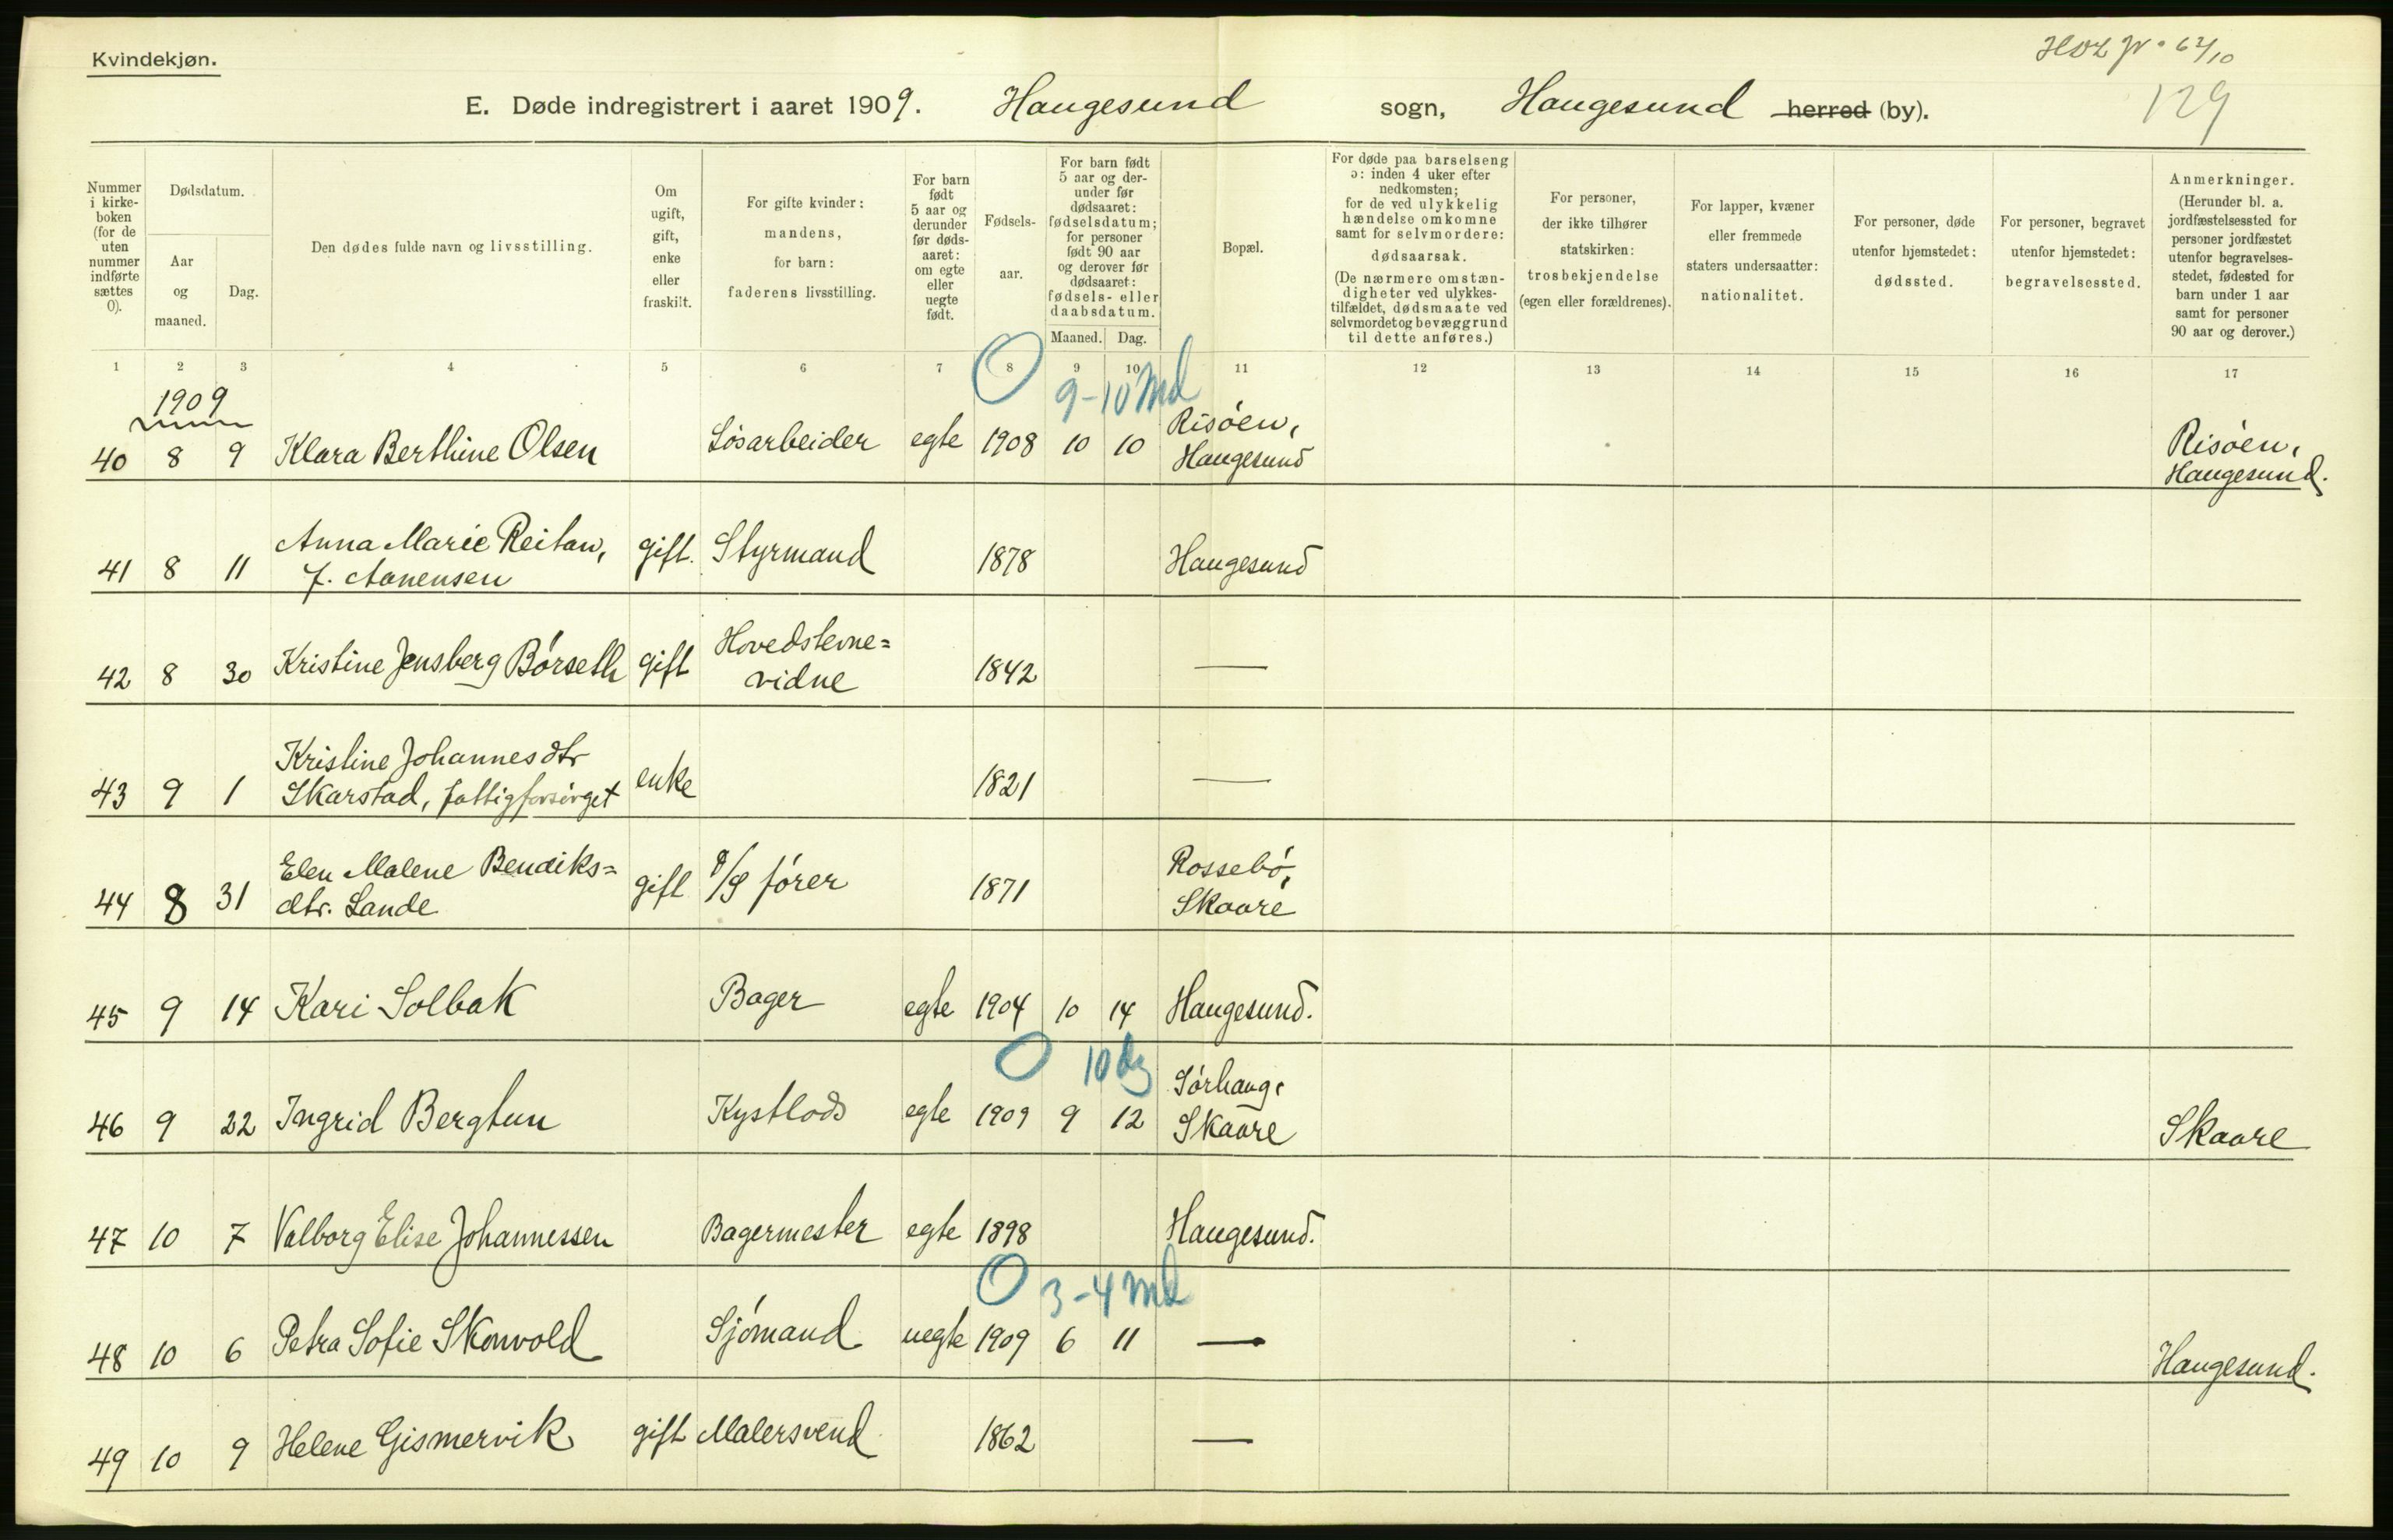 Kvindekjøn.
E. Døde indregistrert i aaret 1909. Haugesund sogn, Haugesund herred (by).
129
Nummer i kirkeboken (for de uten nummer indførte sættes 0).
Dødsdatum.
Aar og maaned.
Dag.
Den dødes fulde navn og livsstilling.
Om ugift, gift, enke eller fraskilt.
For gifte kvinder: mandens, for barn: faderens livsstilling.
For barn født 5 aar og derunder før dødsaaret: om egte eller uegte født.
Fødselsaar.
For barn født 5 aar og derunder før dødsaaret: fødselsdatum; for personer født 90 aar og derover før dødsaaret: fødsels- eller daabsdatum.
Maaned. Dag.
Bopæl.
For døde paa barselseng ɔ: inden 4 uker efter nedkomsten; for de ved ulykkelig hændelse omkomne samt for selvmordere: dødsaarsak. (De nærmere omstændigheter ved ulykkestilfældet, dødsmaate ved selvmordet og bevæggrund til dette anføres.)
For personer, der ikke tilhører statskirken: trosbekjendelse (egen eller forældrenes).
For lapper, kvæner eller fremmede staters undersaatter: nationalitet.
For personer, døde utenfor hjemstedet: dødssted.
For personer, begravet utenfor hjemstedet: begravelsessted.
Anmerkninger. (Herunder bl. a. jordfæstelsessted for personer jordfæstet utenfor begravelsesstedet, fødested for barn under 1 aar samt for personer 90 aar og derover.)
1 2 3 4 5 6 7 8 9 10 11 12 13 14 15 16 17
1909
0 9-10 Md
40 8 9 Klara Berthine Olsen Løsarbeider egte 1908 10 10 Risøen, Haugesund Risøen, Haugesund.
41 8 11 Anna Marie Reitan, f. Aanensen gift. Styrmand 1878 Haugesund
42 8 30 Kristine Jensberg Børseth gift Hovedstevne=vidne 1842 —
43 9 1 Kristine Johannesdtr Skarstad, fattigforsørget enke 1821 —
44 8 31 Elen Malene Bendiks=dtr. Lande gift fører 1871 Rossebø, Skaare
45 9 14 Kari Solbak Bager egte 1904 10 14 Haugesund.
0 10 dg
46 9 22 Ingrid Bergtun Kystlods egte 1909 9 12 Sørhaug, Skaare Skaare
47 10 7 Valborg Elise Johannessen Bagermester egte 1898 Haugesund.
0 3-4 Md
48 10 6 Petra Sofie Skonvold Sjømand uegte 1909 6 11 — Haugesund.
49 10 9 Helene Gismervik gift Malersvend 1862 —